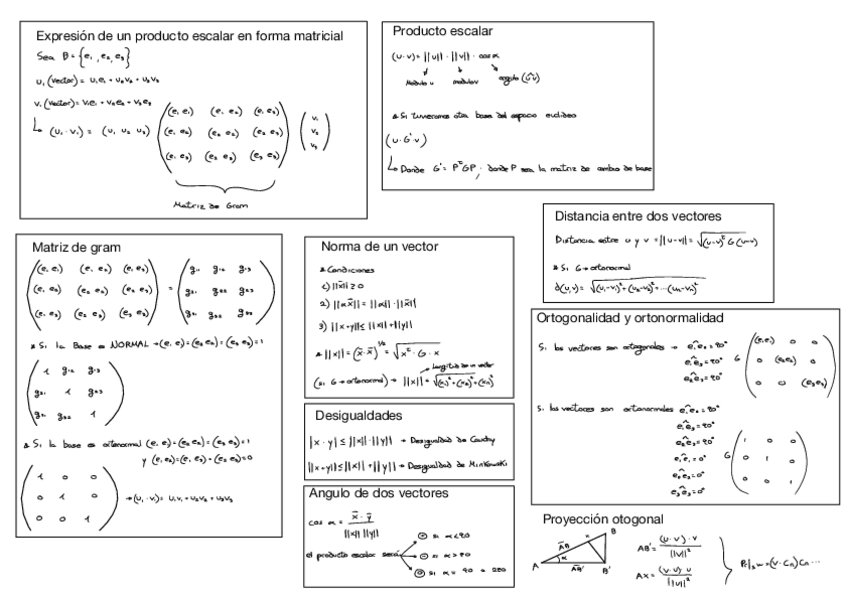 Expresión de un producto escalar en forma matricial
Sea B = {e₁, e₂, e₃}
u, (vector) = u₁e₁ + u₂v₂ + u₃v₃
v, (vector) = v₁e₁ + v₂e₂ + v₃e₃
(u, · v,) = (u, u₂ u₃)
(e, e,) (e, e₂) (e, e₃)
(e, e₂) (e₂ e₂) (e₂ e₃)
(e, e₃) (e₂ e₃) (e₃ e₃)
v₁
v₂
v₃
Matriz de Gram
Producto escalar
(u·v) = ||u|| · ||v|| · cos α
Módulo u módulo v angulo (uv)
* Si tuvieramos otra base del espacio euclideo
(u·G'·v)
Donde G' = PᵗGP, donde P sera la matriz de cambio de base
Distancia entre dos vectores
Distancia entre u y v = ||u-v|| = √(u-v)ᵗ G (u-v)
* Si G → ortonormal
d(u,v) = √(u₁-v₁)² + (u₂-v₂)² + ...(uₙ-vₙ)²
Matriz de gram
(e, e,) (e, e₂) (e, e₃) = g₁₁ g₁₂ g₁₃
(e, e₂) (e₂ e₂) (e₂ e₃) g₂₁ g₂₂ g₂₃
(e, e₃) (e₂ e₃) (e₃ e₃) g₃₁ g₃₂ g₃₃
* Si la Base es NORMAL → (e, e) = (e₂ e₂) = (e₃ e₃) = 1
1 g₁₂ g₁₃
g₂₁ 1 g₂₃
g₃₁ g₃₂ 1
* Si la base es ortonormal (e, e) = (e₂ e₂) = (e₃ e₃) = 1
y (e, e₂) = (e, e₃) = (e₂ e₃) = 0
1 0 0
0 1 0
0 0 1
→ (u, · v,) = u₁v₁ + u₂v₂ + u₃v₃
Norma de un vector
* Condiciones
||x|| ≥ 0
2) ||αx|| = |α| · ||x||
3) ||x+y|| ≤ ||x|| + ||y||
* ||x|| = (x · x)^1/2 = √xᵗ · G · x
Longitud de un vector
(si G → ortonormal) → ||x|| = √(x₁)² + (x₂)² + (xₙ)²
Desigualdades
|x · y| ≤ ||x|| · ||y|| → Desigualdad de Cauchy
||x+y|| ≤ ||x|| + ||y|| → Desigualdad de Minkowski
Angulo de dos vectores
cos α = x · y / ||x|| ||y||
el producto escalar será
⊕ si α < 90
⊖ si α > 90
⓪ si α = 90 = 270
Ortogonalidad y ortonormalidad
Si los vectores son ortogonales → e₁e₂ = 90°
e₁e₃ = 90°
e₂e₃ = 90°
G
(e, e,) 0 0
0 (e₂e₂) 0
0 0 (e₃e₃)
Si los vectores son ortonormales e₁e₂ = 90°
e₁e₃ = 90°
e₂e₃ = 90°
e₁e₁ = 0°
e₂e₂ = 0°
e₃e₃ = 0°
G
1 0 0
0 1 0
0 0 1
Proyección otogonal
A B B' AB AB' x α
AB' = (u·v)·v / ||v||²
AX = (v·v)·u / ||u||²